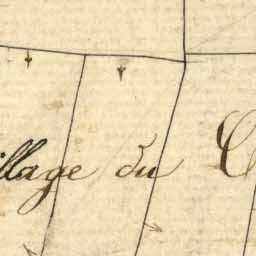 illage du C